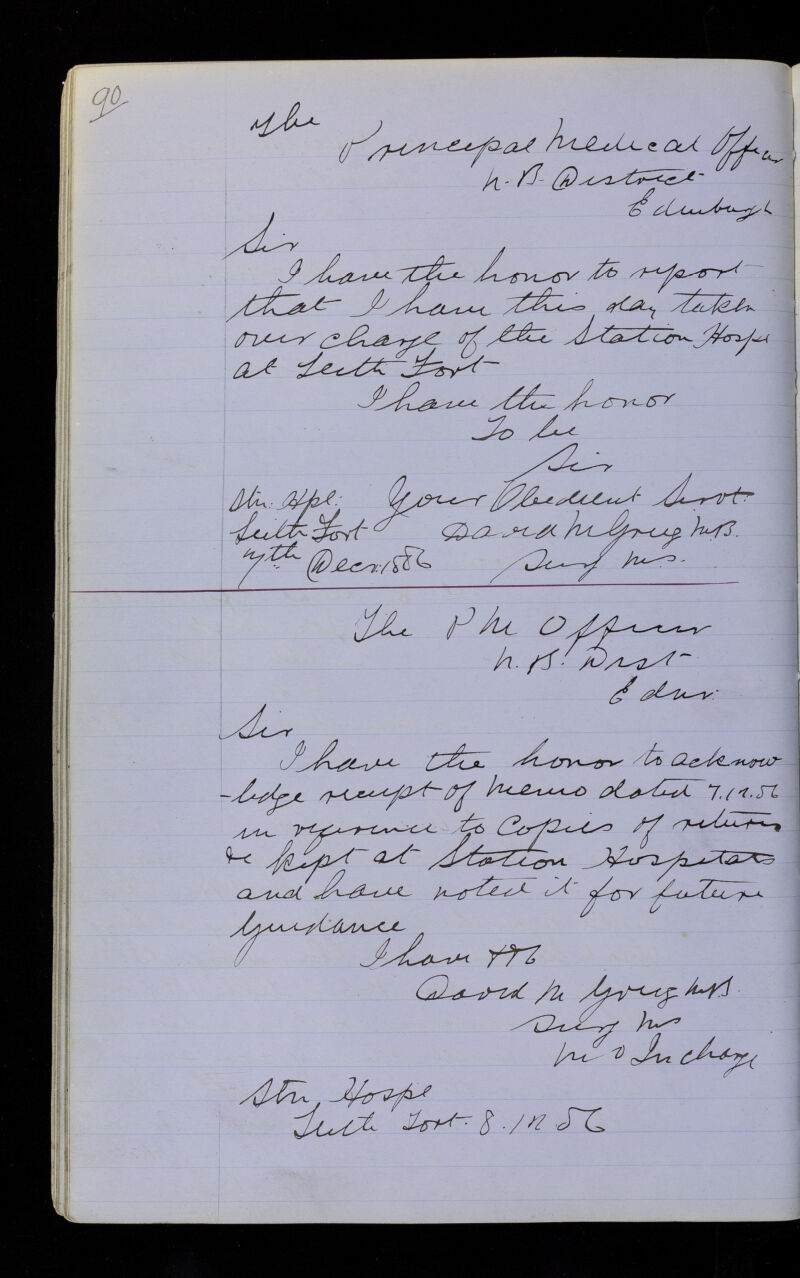 90
The
Principal Medical Officer
N. B. District
Edinburgh
Sir
I have the honor to report
that I have this day taken
over charge of the Station Hospl
at Leith Fort
I have the honor
To be
Sir
Your Obedient Servt.
Stn: Hpl:
Leith Fort
7th Decr. 1886
David M Greig M.B.
Surg M.S.
The P M Officer
N. B. Dist
Ednr:
Sir
I have the honor to acknow
-ledge receipt of Memo dated 7.12.86
in reference to Copies of returns
&c kept at Station Hospitals
and have noted it for future
Guidance
I have &c
David M Greig M.B.
Surg M.S
M O In charge
Stn Hospl
Leith Fort. 8.12.86